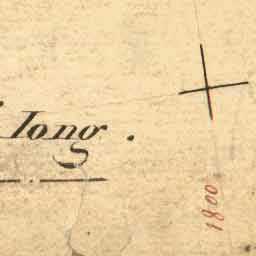 Iong.
1800